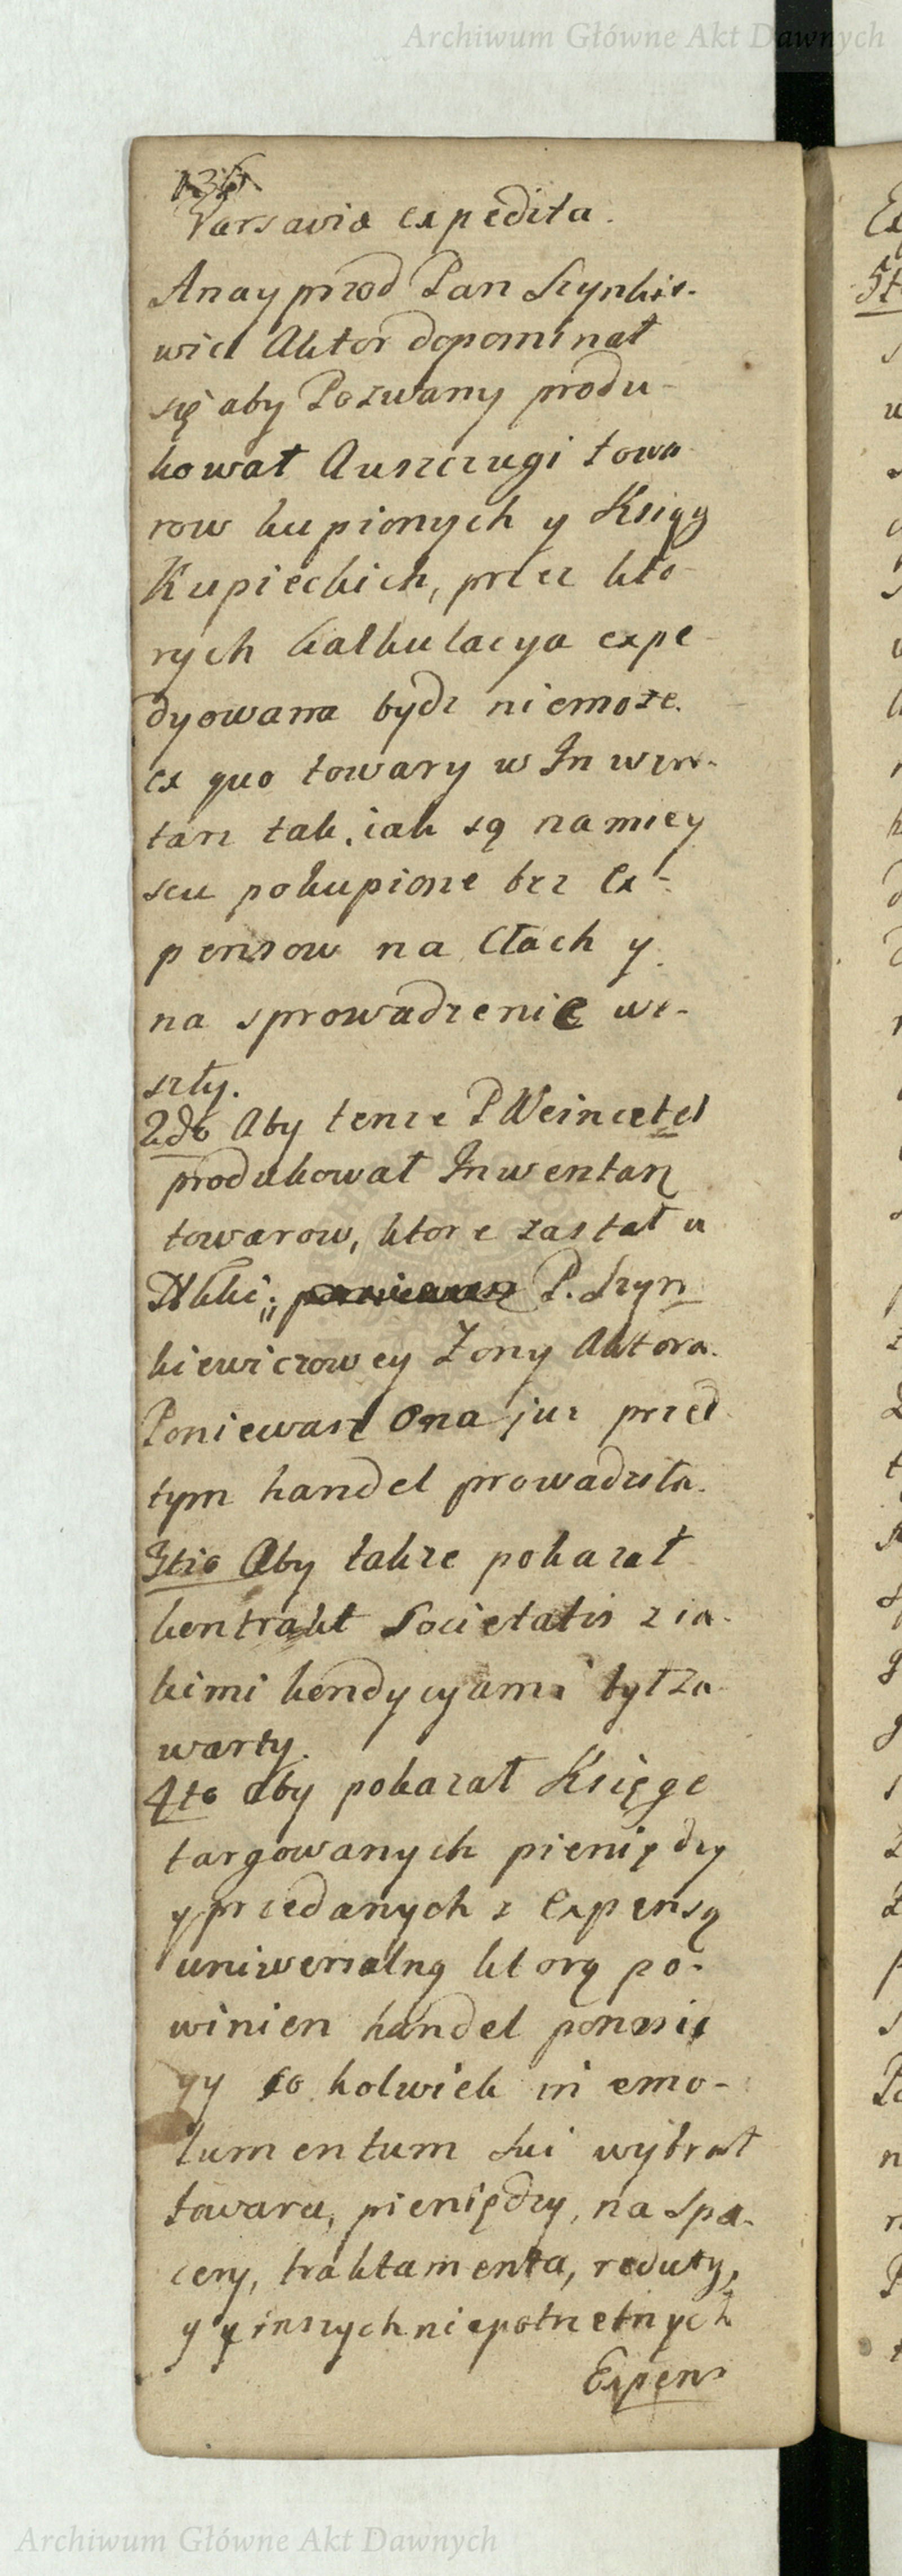 Archiwum Główne Akt Dawnych
136
Varsavia expedita.
A nayprzod Pan Szynkie-
wicz Aktor dopominał
się aby Pozwany produ-
kował Auszczugi towa
row kupionych y Księgg
Kupieckich, przez kto-
rych kalkulacya expe-
dyowana bydz niemoże.
ex quo towary w Inwen-
tarz tak, iak są namiey
scu pokupione bez Ex-
pensow na Cłach y
na sprowadzenie we-
szły.
2do Aby tenze P Weincetel
produkował Inwentarz
towarow, ktore zastał u
P. Szyn
kiewiczowey Zony Aktora.
Poniewasz Ona juz przed
tym handel prowadziła.
3tio Aby takze pokazał
kontrakt Societatis z ia-
kimi kondycyami był za
warty.
4to aby pokazał Księge
targowanych pieniędzy
y przedanych z Expensą
uniwersalną ktorą po-
winien handel ponosić
yy co kolwiek in emo-
lumentum sui wybrał
towaru, pieniędzy, na spa-
cery, traktamenta, reduty,
y y inszych niepotrzebnych
Expens
Archiwum Główne Akt Dawnych